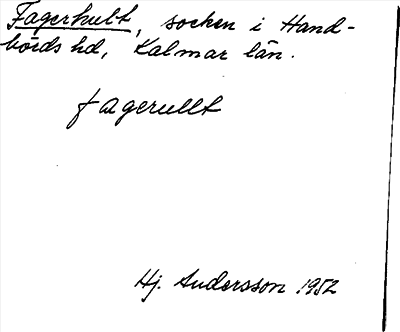 Fagerhult, socken i Hand-
börds hd, Kalmar län.
fagerullt
Hj. Andersson 1952